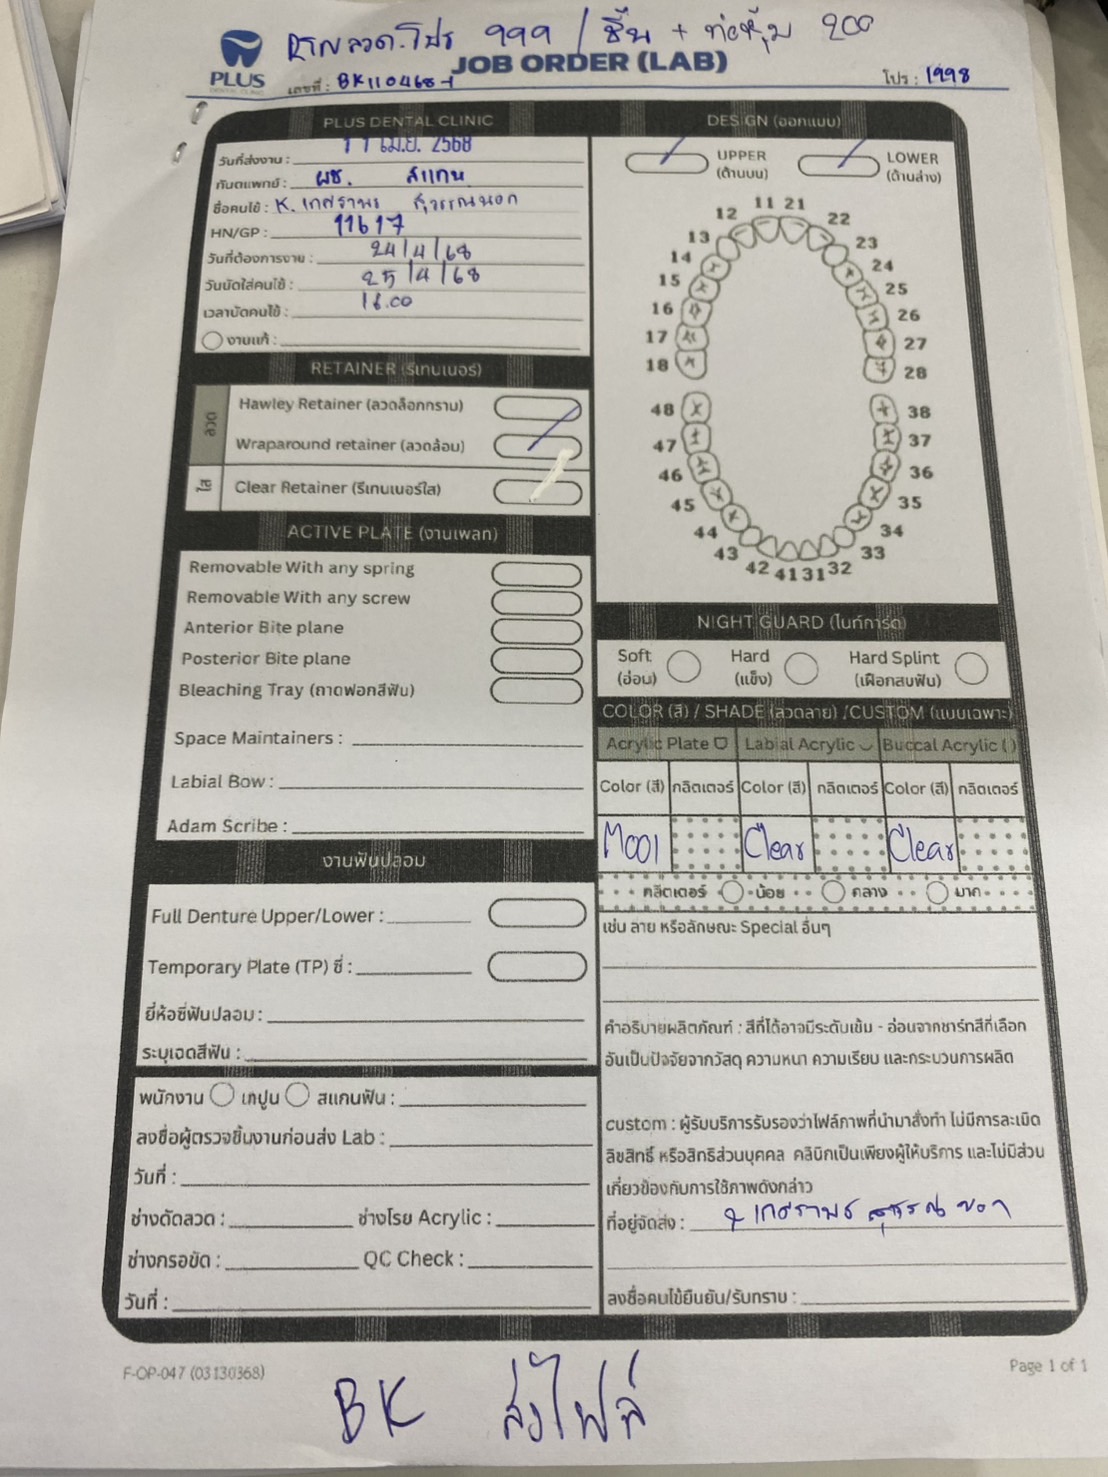 RTN ลวด.โปร 999 / ชิ้น + ท่อหุ้ม 200
PLUS
DENTAL CLINIC
JOB ORDER (LAB)
เลขที่ : BK110468-1
โปร : 1998
PLUS DENTAL CLINIC
วันที่ส่งงาน : 11 เม.ย. 2568
ทันตแพทย์ : ผช. สแกน
ชื่อคนไข้ : K. เกศราพร สุวรรณนอก
HN/GP : 11617
วันที่ต้องการงาน : 24/4/68
วันนัดใส่คนไข้ : 25/4/68
เวลานัดคนไข้ : 16.00
งานแก้ :
RETAINER (รีเทนเนอร์)
ลวด
Hawley Retainer (ลวดล็อกกราม)
Wraparound retainer (ลวดล้อม)
ใส
Clear Retainer (รีเทนเนอร์ใส)
ACTIVE PLATE (งานเพลท)
Removable With any spring
Removable With any screw
Anterior Bite plane
Posterior Bite plane
Bleaching Tray (ถาดฟอกสีฟัน)
Space Maintainers :
Labial Bow :
Adam Scribe :
งานฟันปลอม
Full Denture Upper/Lower :
Temporary Plate (TP) ซี่ :
ยี่ห้อซี่ฟันปลอม :
ระบุเฉดสีฟัน :
พนักงาน เทปูน สแกนฟัน :
ลงชื่อผู้ตรวจชิ้นงานก่อนส่ง Lab :
วันที่ :
ช่างดัดลวด : ช่างโรย Acrylic :
ช่างกรอขัด : QC Check :
วันที่ :
DESIGN (ออกแบบ)
UPPER
(ด้านบน)
LOWER
(ด้านล่าง)
11 21
12 22
13 23
14 24
15 25
16 26
17 27
18 28
48 38
47 37
46 36
45 35
44 34
43 33
42 41 31 32
NIGHT GUARD (ไนท์การ์ด)
Soft
(อ่อน)
Hard
(แข็ง)
Hard Splint
(เฝือกสบฟัน)
COLOR (สี) / SHADE (ลวดลาย) /CUSTOM (แบบเฉพาะ)
Acrylic Plate Labial Acrylic Buccal Acrylic ( )
Color (สี) กลิตเตอร์ Color (สี) กลิตเตอร์ Color (สี) กลิตเตอร์
M001 Clear Clear
กลิตเตอร์ น้อย กลาง มาก
เช่น ลาย หรือลักษณะ Special อื่นๆ
คำอธิบายผลิตภัณฑ์ : สีที่ได้อาจมีระดับเข้ม - อ่อนจากชาร์ทสีที่เลือก
อันเป็นปัจจัยจากวัสดุ ความหนา ความเรียบ และกระบวนการผลิต
custom : ผู้รับบริการรับรองว่าไฟล์ภาพที่นำมาสั่งทำ ไม่มีการละเมิด
ลิขสิทธิ์ หรือสิทธิส่วนบุคคล คลินิกเป็นเพียงผู้ให้บริการ และไม่มีส่วน
เกี่ยวข้องกับการใช้ภาพดังกล่าว
ที่อยู่จัดส่ง : เกศราพร สุวรรณนอก
ลงชื่อคนไข้ยืนยัน/รับทราบ :
F-OP-047 (03130368)
Page 1 of 1
BK ส่งไฟล์